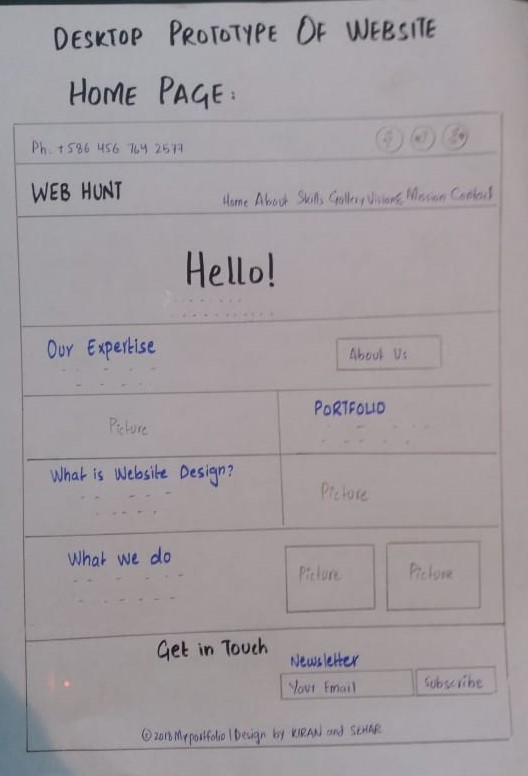 DESKTOP PROTOTYPE OF WEBSITE
HOME PAGE:
Ph. +586 456 764 2577
WEB HUNT
Home About Skills Gallery Vision& Mission Contact
Hello!
Our Expertise
About Us
Picture
PORTFOLIO
What is Website Design?
Picture
What we do
Picture
Picture
Get in Touch
Newsletter
Your Email
Subscribe
©2018 Myportfolio | Design by KIRAN and SEHAR